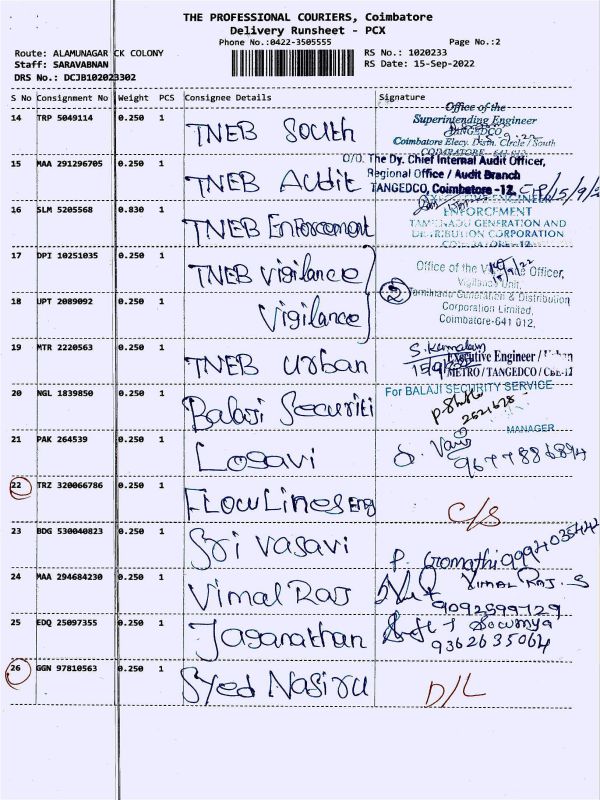 THE PROFESSIONAL COURIERS, Coimbatore
Delivery Runsheet - PCX
Phone No.:0422-3505555
Page No.:2
Route: ALAMUNAGAR CK COLONY
RS No.: 1020233
Staff: SARAVABNAN
RS Date: 15-Sep-2022
DRS No.: DCJB102023302
S No Consignment No Weight PCS Consignee Details Signature
14 TRP 5049114 0.250 1 TNEB South
Office of the
Superintending Engineer
TANGEDCO
Coimbatore Elecy. Distn. Circle / South
COIMBATORE - 641 012
15 MAA 291296705 0.250 1 TNEB Audit
O/O. The Dy. Chief Internal Audit Officer,
Regional Office / Audit Branch
TANGEDCO, Coimbatore -12.
16 SLM 5205568 0.830 1 TNEB Enforcement
ENFORCEMENT
TAMILNADU GENERATION AND
DISTRIBUTION CORPORATION
17 DPI 10251035 0.250 1 TNEB Vigilance
18 UPT 2089092 0.250 1 Vigilance
2
Office of the Officer,
Vigilance Unit,
Tamilnadu Generation & Distribution
Corporation Limited,
Coimbatore-641 012,
19 MTR 2220563 0.250 1 TNEB Urban
S. Kamalam
Executive Engineer / Urban
METRO / TANGEDCO / CBE-12
20 NGL 1839850 0.250 1 Balaji Securiti
For BALAJI SECURITY SERVICE
MANAGER
21 PAK 264539 0.250 1 Losavi
9677886894
22 TRZ 320066786 0.250 1 Flow Lines Eng
C/S
23 BDG 530040823 0.250 1 Sri Vasavi
P. Gomathi 9994035442
24 MAA 294684230 0.250 1 Vimal Raj
VIMAL RAJ. S
9092599729
25 EDQ 25097355 0.250 1 Jaganathan
Sowmya
9362635064
26 GGN 97810563 0.250 1 Syed Nasiru
D/L